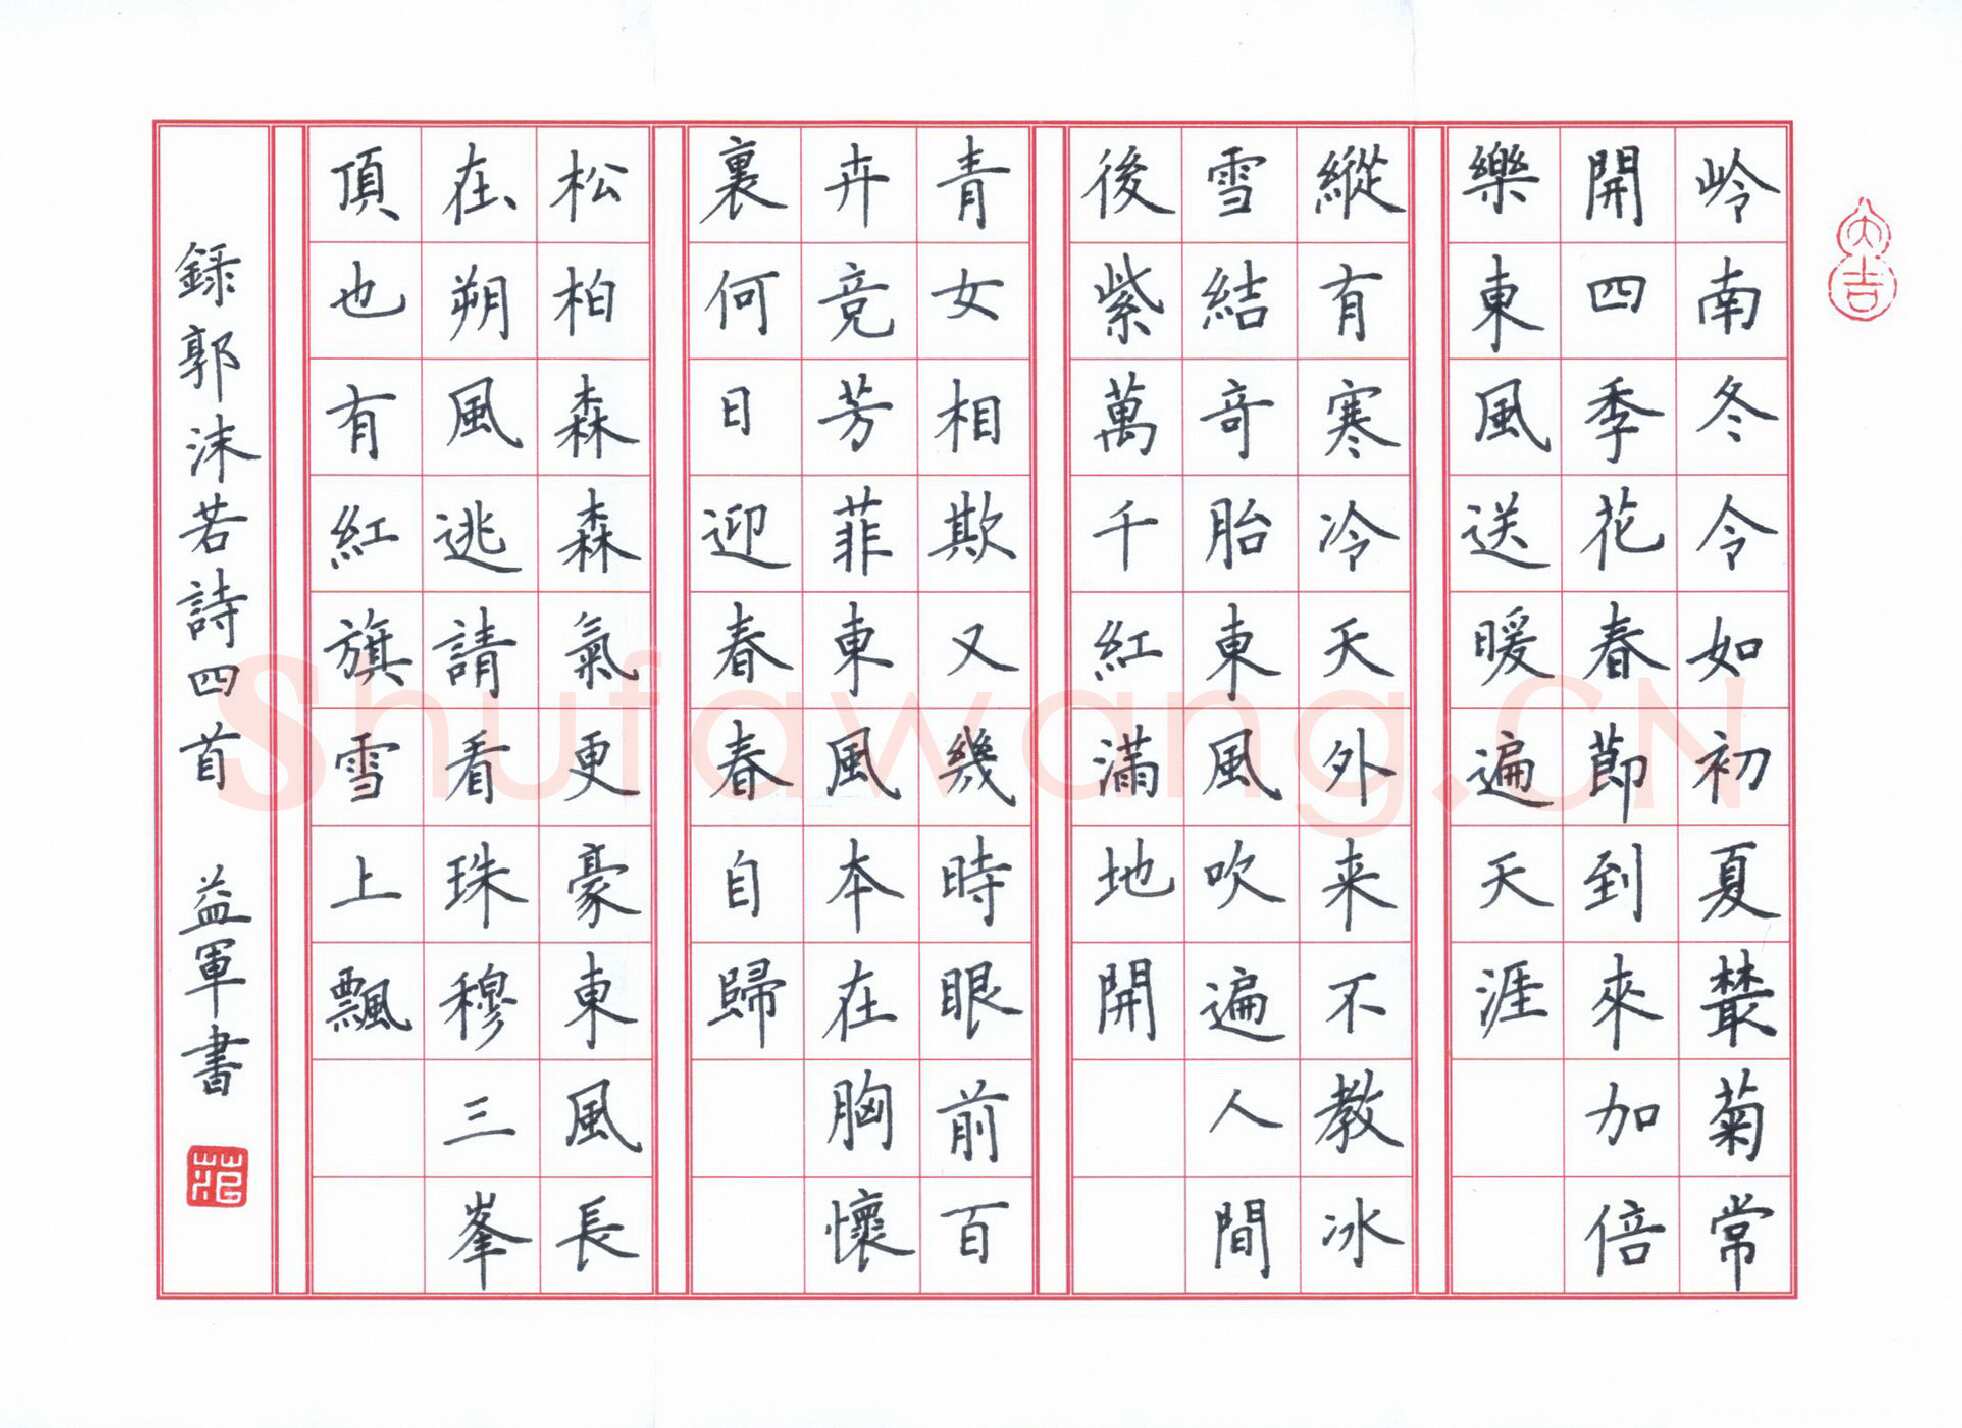 大吉
岭南冬令如初夏叢菊常
開四季花春節到來加倍
樂東風送暖遍天涯
縱有寒冷天外来不教冰
雪結奇胎東風吹遍人間
後紫萬千紅滿地開
青女相欺又幾時眼前百
卉竞芳菲東風本在胸懷
裏何日迎春春自歸
松柏森森氣更豪東風長
在朔風逃請看珠穆三峯
頂也有紅旗雪上飄
録郭沫若詩四首 益軍書
Shufawang.CN